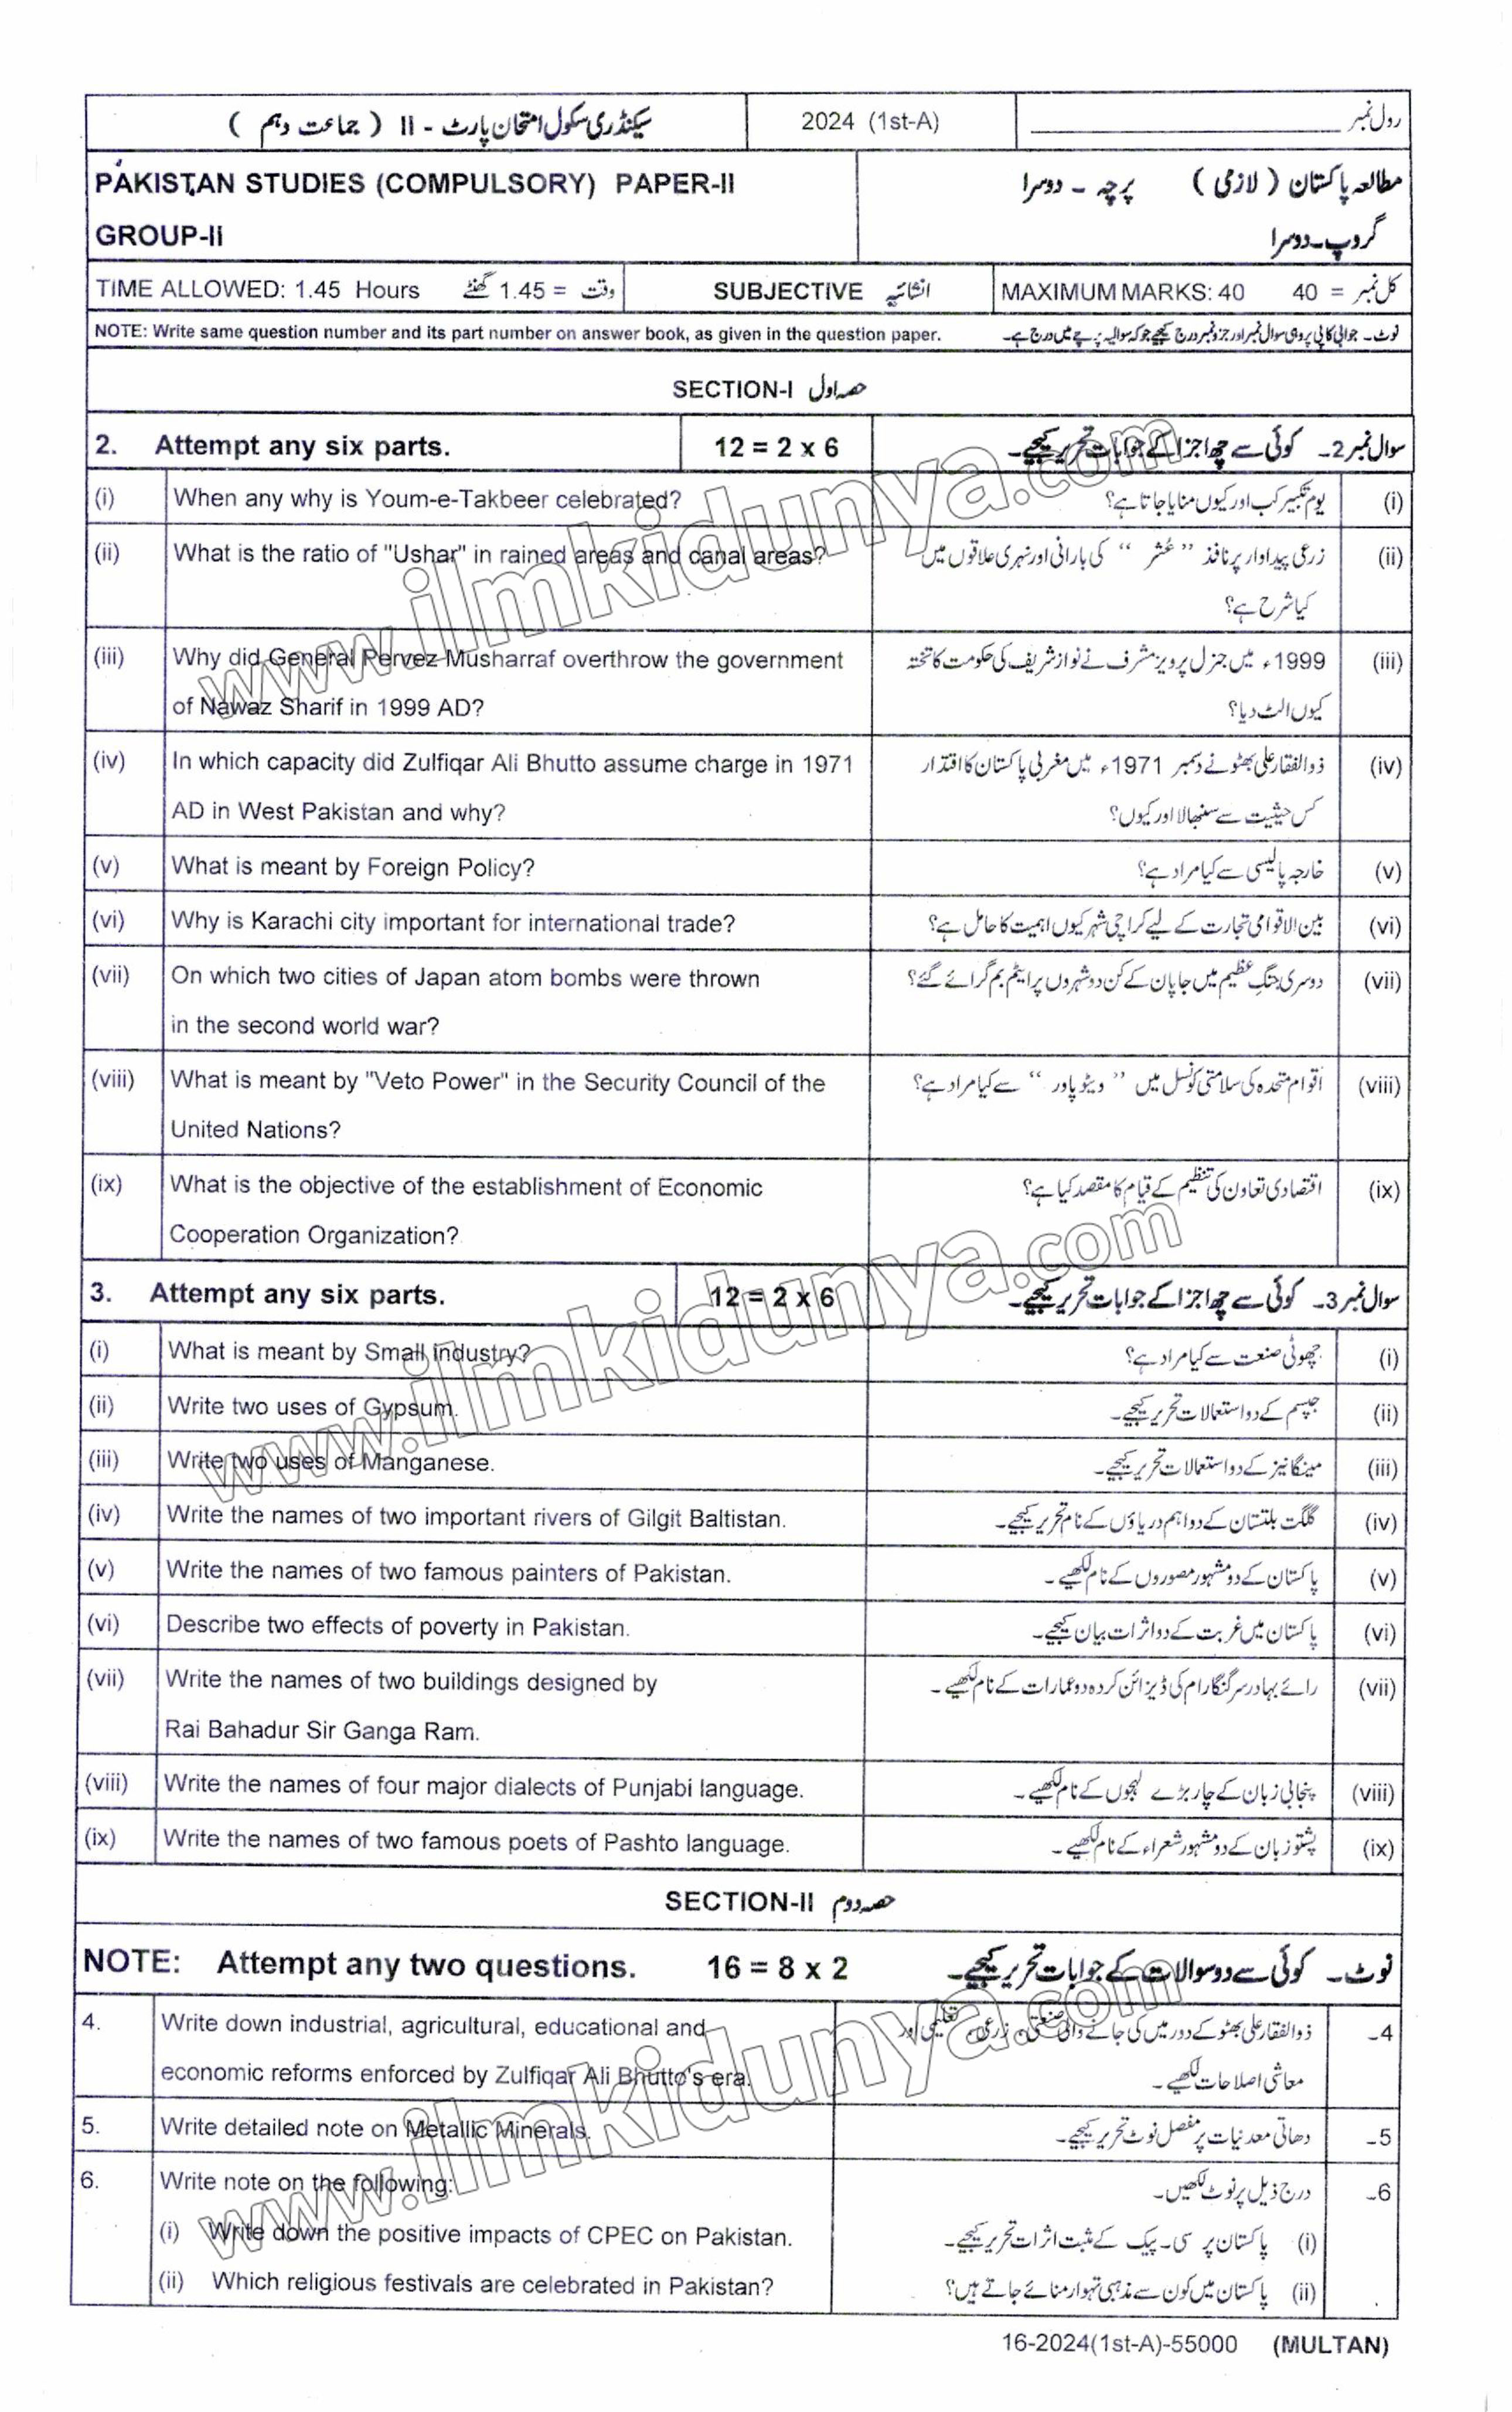 سیکنڈری سکول امتحان پارٹ - II ( جماعت دہم )
2024 (1st-A)
رول نمبر
PAKISTAN STUDIES (COMPULSORY) PAPER-II
مطالعہ پاکستان ( لازمی ) پرچہ - دوسرا
GROUP-II
گروپ۔دوسرا
TIME ALLOWED: 1.45 Hours وقت = 1.45 گھنٹے
SUBJECTIVE انشائیہ
MAXIMUM MARKS: 40 کل نمبر = 40
NOTE: Write same question number and its part number on answer book, as given in the question paper.
نوٹ۔ جوابی کاپی پر وہی سوال نمبر اور جزو نمبر درج کیجیے جو کہ سوالیہ پرچے میں درج ہے۔
SECTION-I حصہ اول
2. Attempt any six parts. 12 = 2 x 6 سوال نمبر 2۔ کوئی سے چھ اجزا کے جوابات تحریر کیجیے۔
(i) When any why is Youm-e-Takbeer celebrated? یوم تکبیر کب اور کیوں منایا جاتا ہے؟ (i)
(ii) What is the ratio of "Ushar" in rained areas and canal areas? زرعی پیداوار پر نافذ ’’ عُشر ‘‘ کی بارانی اور نہری علاقوں میں (ii)
کیا شرح ہے؟
(iii) Why did General Pervez Musharraf overthrow the government 1999ء میں جنرل پرویز مشرف نے نواز شریف کی حکومت کا تختہ (iii)
of Nawaz Sharif in 1999 AD? کیوں الٹ دیا؟
(iv) In which capacity did Zulfiqar Ali Bhutto assume charge in 1971 ذوالفقار علی بھٹو نے دسمبر 1971ء میں مغربی پاکستان کا اقتدار (iv)
AD in West Pakistan and why? کس حیثیت سے سنبھالا اور کیوں؟
(v) What is meant by Foreign Policy? خارجہ پالیسی سے کیا مراد ہے؟ (v)
(vi) Why is Karachi city important for international trade? بین الاقوامی تجارت کے لیے کراچی شہر کیوں اہمیت کا حامل ہے؟ (vi)
(vii) On which two cities of Japan atom bombs were thrown دوسری جنگِ عظیم میں جاپان کے کن دو شہروں پر ایٹم بم گرائے گئے؟ (vii)
in the second world war?
(viii) What is meant by "Veto Power" in the Security Council of the اقوام متحدہ کی سلامتی کونسل میں ’’ ویٹو پاور ‘‘ سے کیا مراد ہے؟ (viii)
United Nations?
(ix) What is the objective of the establishment of Economic اقتصادی تعاون کی تنظیم کے قیام کا مقصد کیا ہے؟ (ix)
Cooperation Organization?
3. Attempt any six parts. 12 = 2 x 6 سوال نمبر 3۔ کوئی سے چھ اجزا کے جوابات تحریر کیجیے۔
(i) What is meant by Small Industry? چھوٹی صنعت سے کیا مراد ہے؟ (i)
(ii) Write two uses of Gypsum. جپسم کے دو استعمالات تحریر کیجیے۔ (ii)
(iii) Write two uses of Manganese. مینگانیز کے دو استعمالات تحریر کیجیے۔ (iii)
(iv) Write the names of two important rivers of Gilgit Baltistan. گلگت بلتستان کے دو اہم دریاؤں کے نام تحریر کیجیے۔ (iv)
(v) Write the names of two famous painters of Pakistan. پاکستان کے دو مشہور مصوروں کے نام لکھیے۔ (v)
(vi) Describe two effects of poverty in Pakistan. پاکستان میں غربت کے دو اثرات بیان کیجیے۔ (vi)
(vii) Write the names of two buildings designed by رائے بہادر سر گنگا رام کی ڈیزائن کردہ دو عمارات کے نام لکھیے۔ (vii)
Rai Bahadur Sir Ganga Ram.
(viii) Write the names of four major dialects of Punjabi language. پنجابی زبان کے چار بڑے لہجوں کے نام لکھیے۔ (viii)
(ix) Write the names of two famous poets of Pashto language. پشتو زبان کے دو مشہور شعراء کے نام لکھیے۔ (ix)
SECTION-II حصہ دوم
NOTE: Attempt any two questions. 16 = 8 x 2 نوٹ۔ کوئی سے دو سوالات کے جوابات تحریر کیجیے۔
4. Write down industrial, agricultural, educational and ذوالفقار علی بھٹو کے دور میں کی جانے والی صنعتی، زرعی، تعلیمی اور 4۔
economic reforms enforced by Zulfiqar Ali Bhutto's era. معاشی اصلاحات لکھیے۔
5. Write detailed note on Metallic Minerals. دھاتی معدنیات پر مفصل نوٹ تحریر کیجیے۔ 5۔
6. Write note on the following: درج ذیل پر نوٹ لکھیں۔ 6۔
(i) Write down the positive impacts of CPEC on Pakistan. (i) پاکستان پر سی۔پیک کے مثبت اثرات تحریر کیجیے۔
(ii) Which religious festivals are celebrated in Pakistan? (ii) پاکستان میں کون سے مذہبی تہوار منائے جاتے ہیں؟
16-2024(1st-A)-55000 (MULTAN)
www.ilmkidunya.com
www.ilmkidunya.com
www.ilmkidunya.com